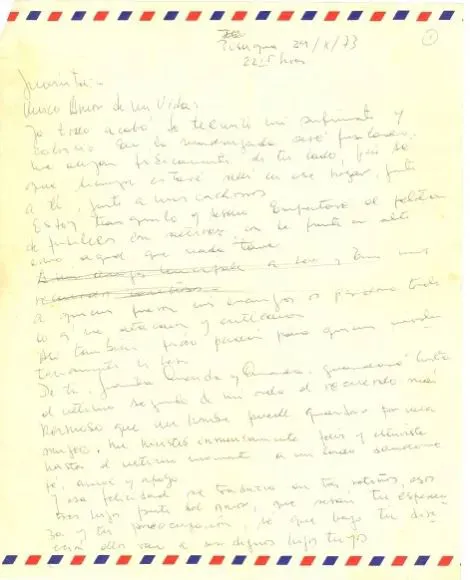 Pisagua 29/X/73
2215 horas
1
Juanita:-
Unico Amor de mi Vida:
Ya todo acabó. Se terminó mi sufrimiento y
En la madrugada seré fusilado,
me alejan físicamente de tu lado, pero sé
que siempre estaré en ese hogar, junto
a ti, junto a mis cachorros
Estoy tranquilo y sereno. Enfrentaré el pelotón
de fusileros con, con la frente en alto
como aquel que nada teme
A quienes fueron mis enemigos os perdono todo
lo q me atacaron y
Así también pido perdón para quienes
De ti, Juanita Querida y Amada, guardaré hasta
el último segundo de mi vida el recuerdo más
hermoso que un hombre puede guardar por una
mujer. Me hiciste inmensamente feliz y
hasta el último momento a mi lado dandome
fé, amor y apoyo
Y esa felicidad se en tres retoños, esos
tres hijos fruto del amor, que seran tu esperan
za y tu preocupación, sé que bajo tu
ellos van a ser dignos hijos tuyos